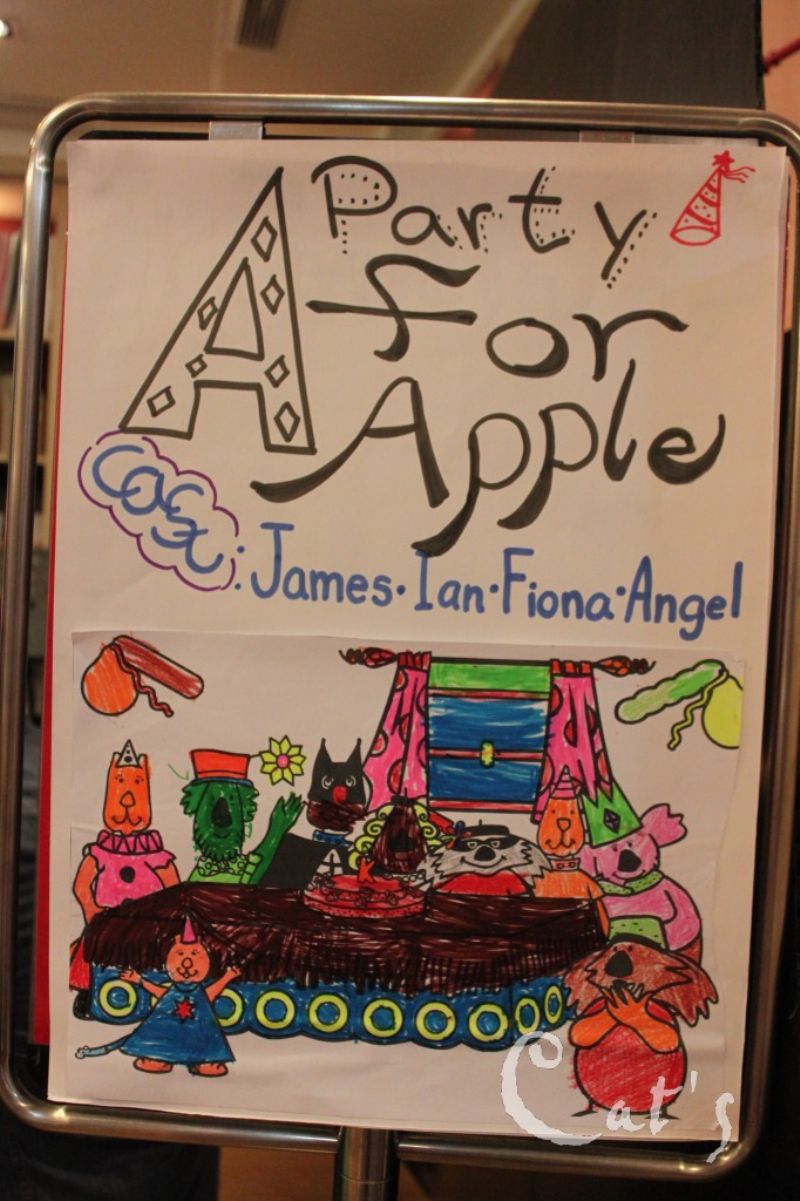 A Party
for
Apple
Cast:
James·Ian·Fiona·Angel
A
K
Cat's